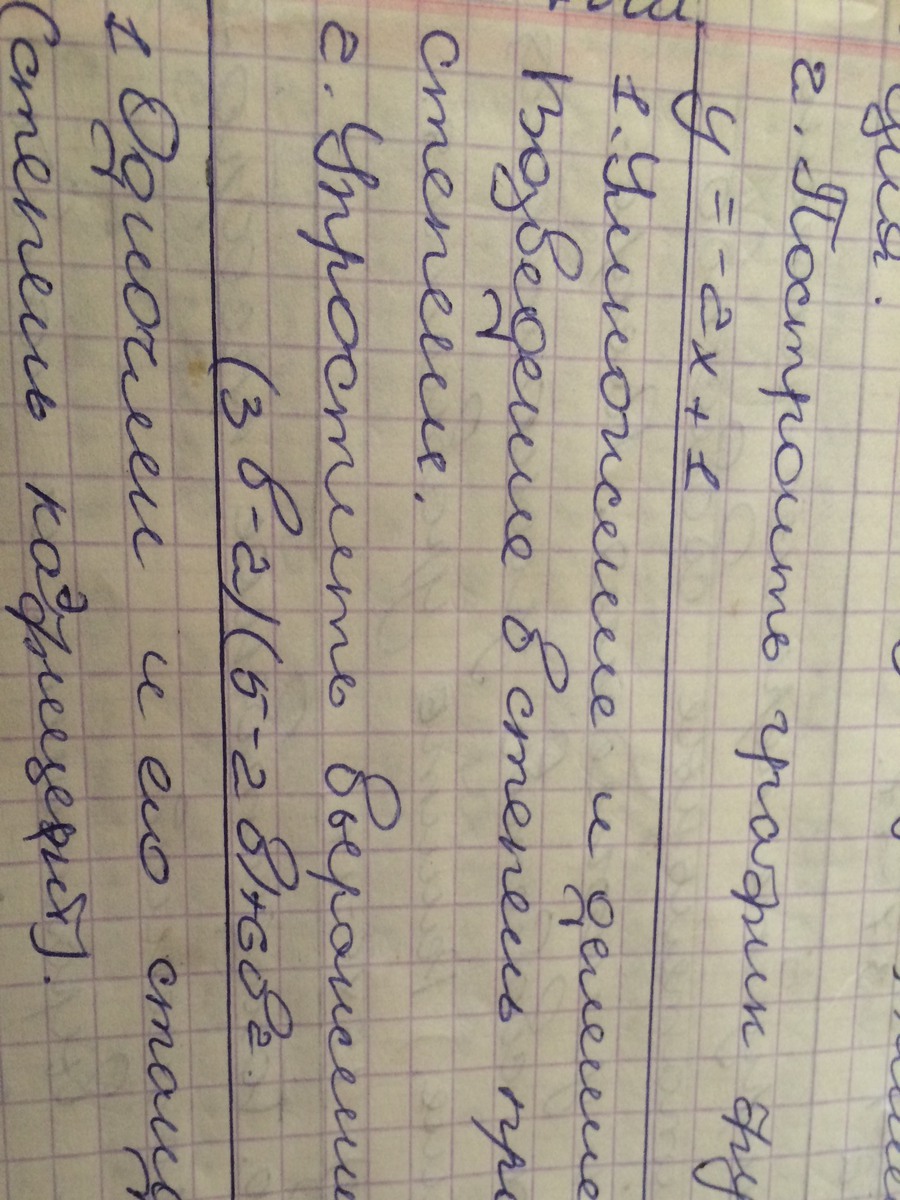 2. Построить график фу
y = -2x + 1
1. Умножение и деление
Возведение в степень пр
степени.
2. Упростить выражени
(3в-2)(5-2в)+6в².
1 Одночлен и его станд
(степень, коэфициент).